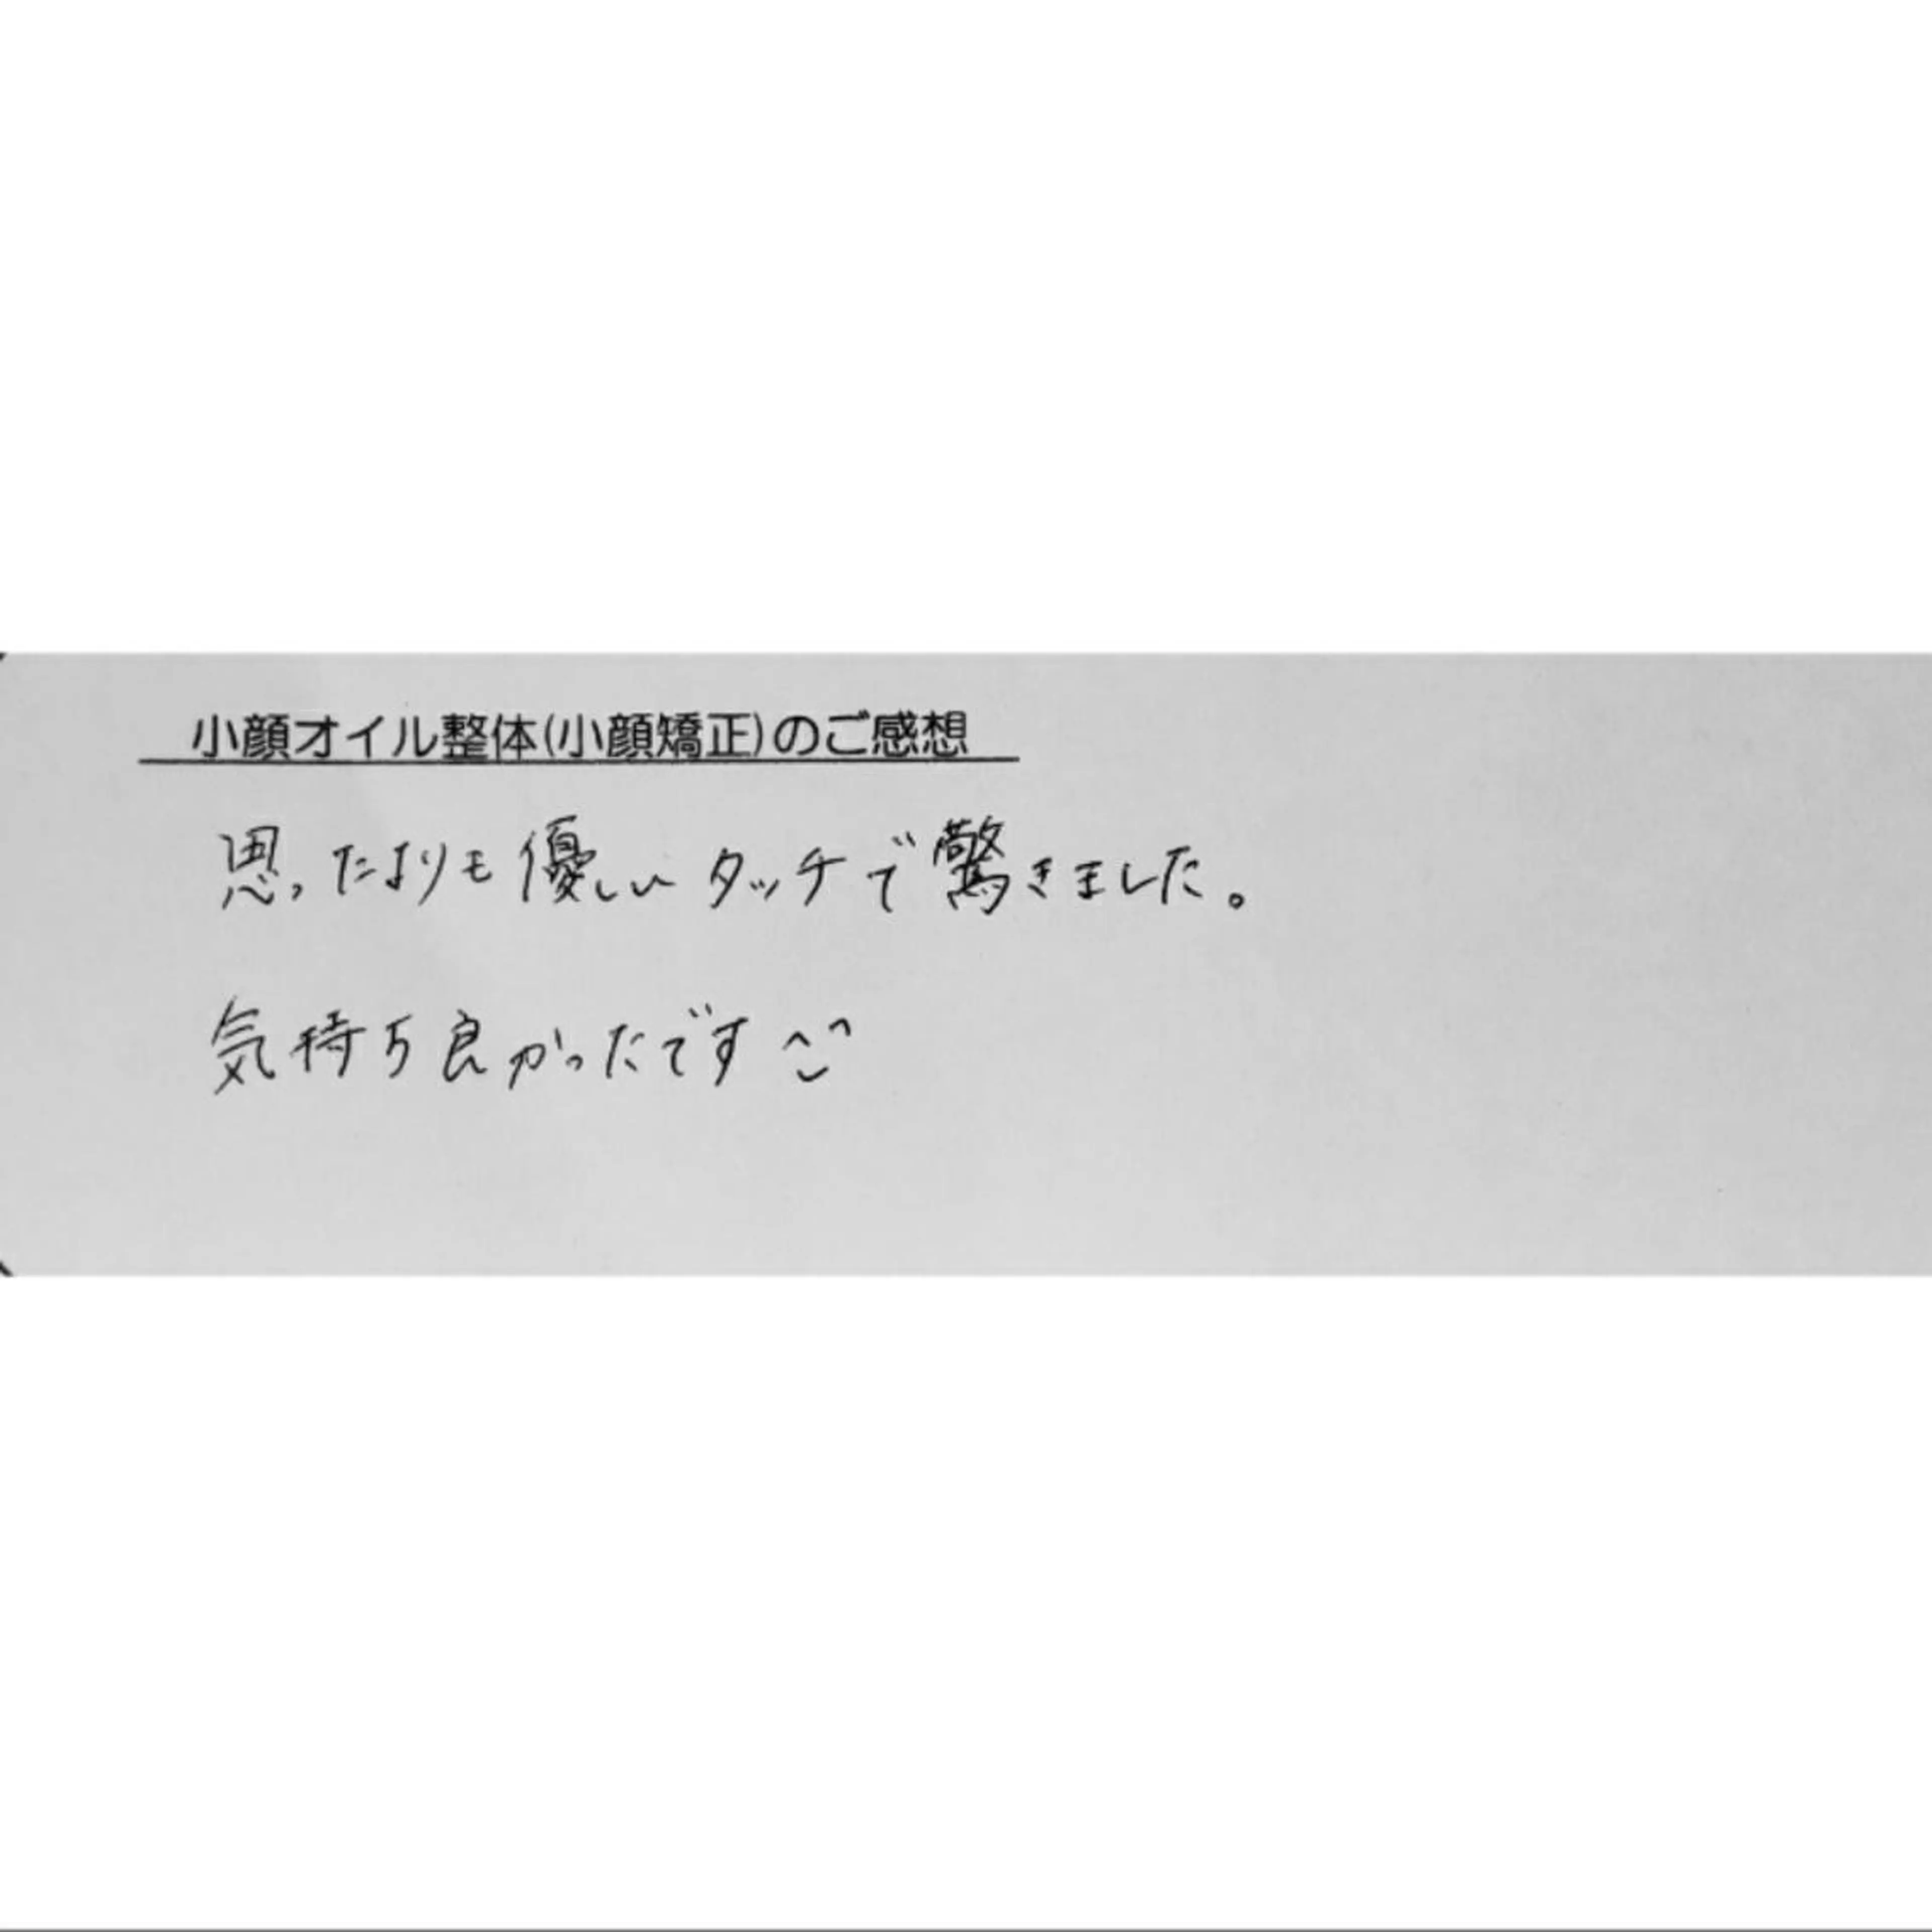 小顔オイル整体(小顔矯正)のご感想
思ったよりも優しいタッチで驚きました。
気持ち良かったです^^